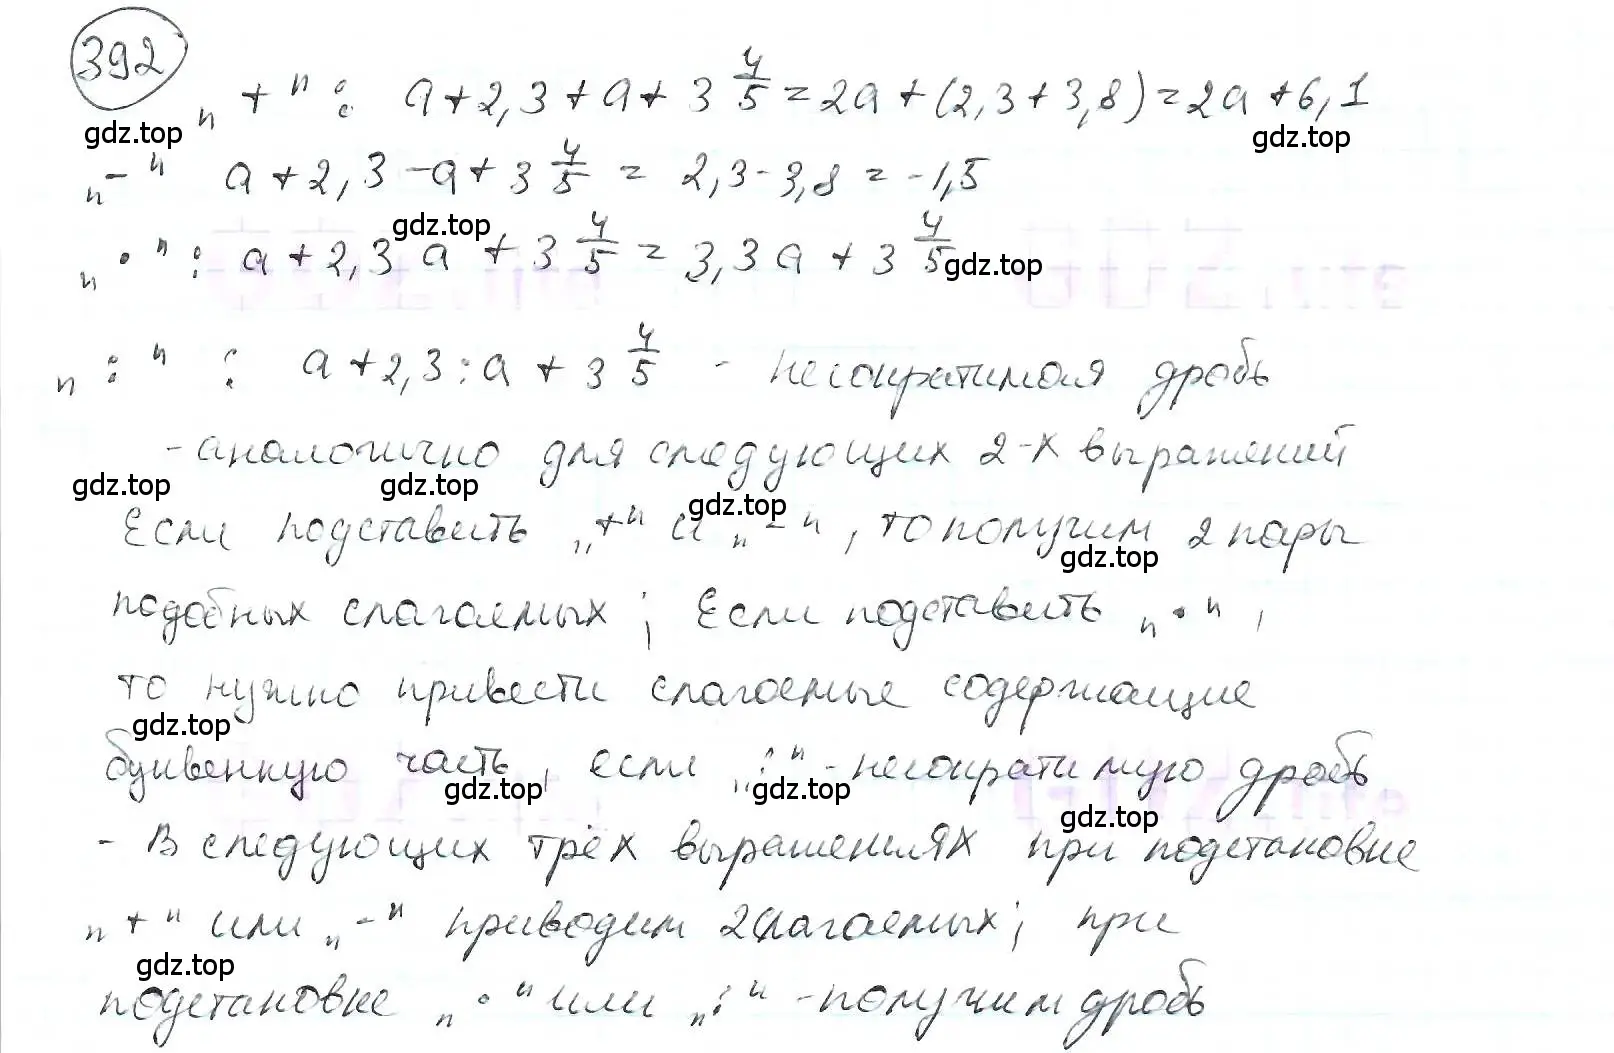 392
„+“: a+2,3+a+3 4/5=2a+(2,3+3,8)=2a+6,1
gdz.top gdz.top
„-“ a+2,3-a+3 4/5 = 2,3-3,8=-1,5
gdz.top
„·“: a+2,3a+3 4/5=3,3a+3 4/5
gdz.top
„:“ : a+2,3:a+3 4/5 - несократимая дробь
- аналогично для следующих 2-х выражений
gdz.top gdz.top gdz.top
Если подставить „+“ и „-“, то получим 2 пары
gdz.top
подобных слагаемых; Если подставить „·“,
то нужно привести слагаемые содержащие
gdz.top
буквенную часть, если „:“ - несократимую дробь
gdz.top gdz.top gdz.top
- В следующих трёх выражениях при подстановке
„+“ или „-“ приводим 2 слагаемых; при
gdz.top
подстановке „·“ или „:“ - получим дробь